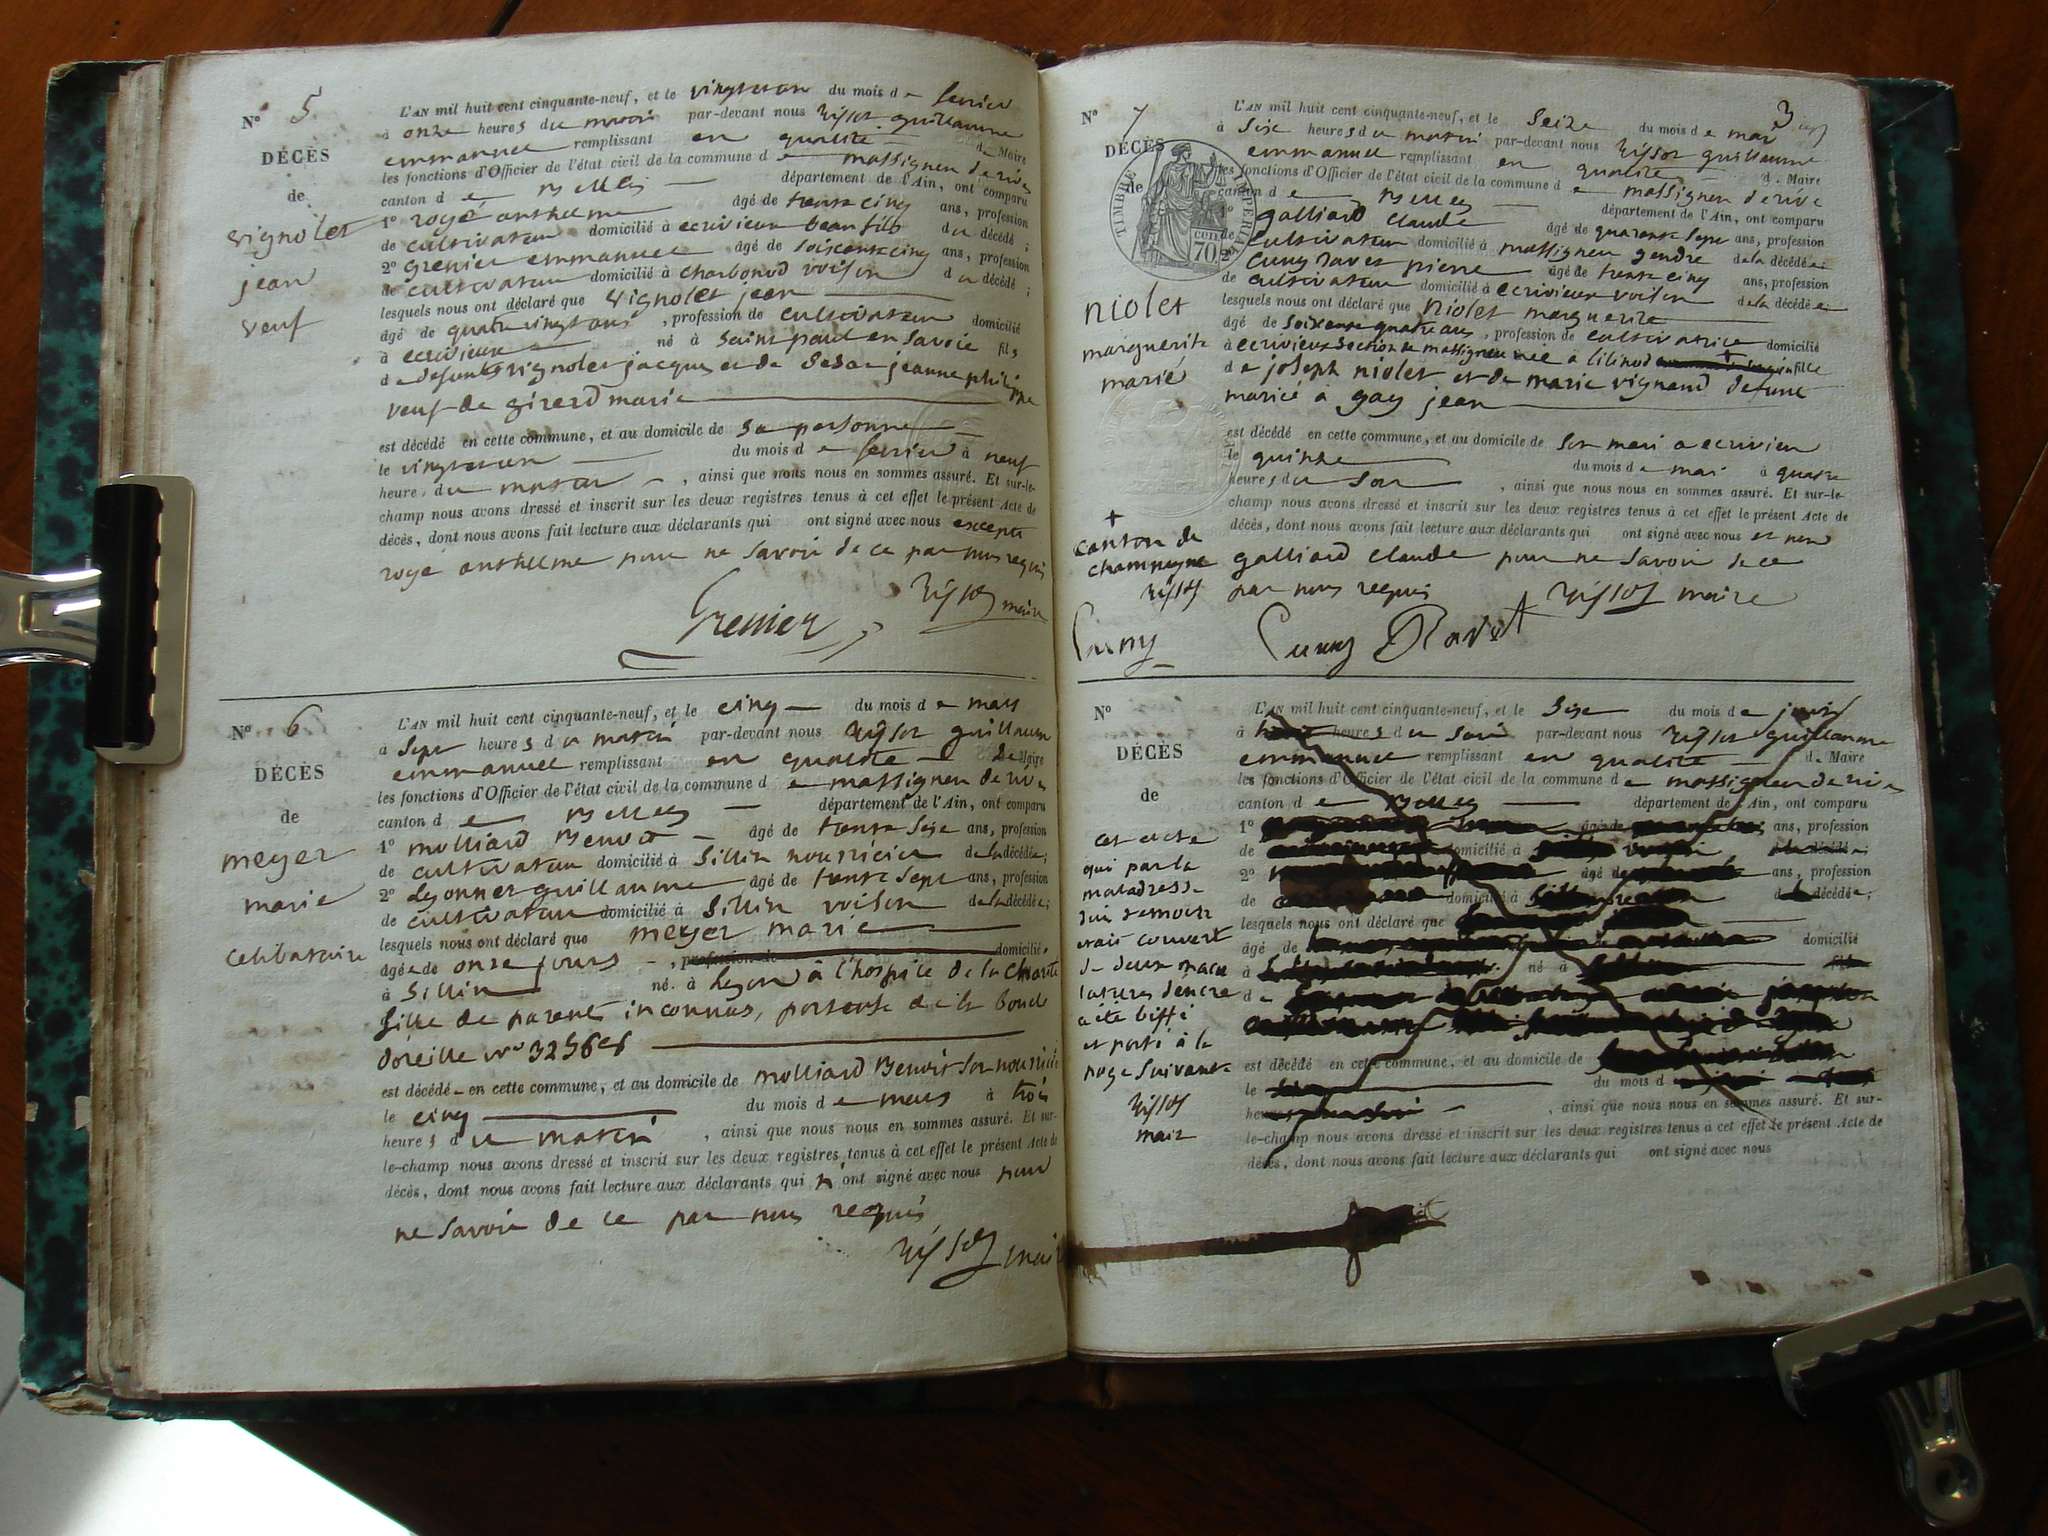 N° 5
DÉCÈS
de
vignolet
jean
veuf
L'AN mil huit cent cinquante-neuf, et le vingt du mois de fevrier
à onze heures du matin par-devant nous Rissot guillaume
emmanuel remplissant en qualité de Maire
les fonctions d'Officier de l'état civil de la commune de massigneu de rives
canton de Belley département de l'Ain, ont comparu
1° roge anthelme âgé de trente cinq ans, profession
de cultivateur domicilié à ecrivieux beau fils du décédé;
2° Grenier emmanuel âgé de soixante cinq ans, profession
de cultivateur domicilié à charbonod voisin du décédé;
lesquels nous ont déclaré que vignolet jean
âgé de quatre vingt ans, profession de cultivateur domicilié
à ecrivieux né à saint paul en savoie fils
de defunts vignolet jacques et de jeanne philippine
veuf de girerd marie
est décédé en cette commune, et au domicile de sa personne
le du mois de fevrier à neuf
heures du matin, ainsi que nous nous en sommes assuré. Et sur-le-
champ nous avons dressé et inscrit sur les deux registres tenus à cet effet le présent Acte de
décès, dont nous avons fait lecture aux déclarants qui ont signé avec nous excepté
roge anthelme pour ne savoir de ce par nous requis
Rissot maire
Grenier
N° 6
DÉCÈS
de
meyer
marie
celibataire
L'AN mil huit cent cinquante-neuf, et le cinq du mois de mars
à sept heures du matin par-devant nous Rissot guillaume
emmanuel remplissant en qualité de Maire
les fonctions d'Officier de l'état civil de la commune de massigneu de rives
canton de Belley département de l'Ain, ont comparu
1° molliard Benoit âgé de trente six ans, profession
de cultivateur domicilié à sillin nourricier de la décédée;
2° Leyonnet guillaume âgé de trente sept ans, profession
de cultivateur domicilié à sillin voisin de la décédée;
lesquels nous ont déclaré que meyer marie
âgée de onze jours, profession de domicilié
à sillin né à lyon à l'hospice de la charité
fille de parents inconnus, porteuse de la boucle
d'oreille n°
est décédé en cette commune, et au domicile de molliard Benoit son nourricier
le cinq du mois de mars à trois
heures du matin, ainsi que nous nous en sommes assuré. Et sur-
le-champ nous avons dressé et inscrit sur les deux registres tenus à cet effet le présent Acte de
décès, dont nous avons fait lecture aux déclarants qui n ont signé avec nous pour
ne savoir de ce par nous requis
Rissot maire
3
N° 7
DÉCÈS
de
TIMBRE IMPERIAL
70 cen
niolet
marguerite
marié
L'AN mil huit cent cinquante-neuf, et le seize du mois de mai
à six heures du matin par-devant nous Rissot guillaume
emmanuel remplissant en qualité d. Maire
les fonctions d'Officier de l'état civil de la commune de massigneu de rive
canton de Belley département de l'Ain, ont comparu
1° galliard claude âgé de quarante sept ans, profession
de cultivateur domicilié à massigneu gendre de la décédée;
2° Cuny ravet pierre âgé de trente cinq ans, profession
de cultivateur domicilié à ecrivieux voisin de la décédée
lesquels nous ont déclaré que niolet marguerite
âgé de soixante quatre ans, profession de cultivatrice domicilié
à ecrivieux section de massigneu née à lilinod + fille
de joseph niolet et de marie vignand defunt
marié à gay jean
est décédé en cette commune, et au domicile de son mari a ecrivieu
le quinze du mois de mai à quatre
heures du soir, ainsi que nous nous en sommes assuré. Et sur-le-
champ nous avons dressé et inscrit sur les deux registres tenus à cet effet le présent Acte de
décès, dont nous avons fait lecture aux déclarants qui ont signé avec nous et non
galliard claude pour ne savoir de ce
par nous requis Rissot maire
+
canton de
champagne
Rissot
Cuny
Cuny Ravet
N°
DÉCÈS
de
cet acte
qui par la
maladresse
était couvert
de deux macu
latures d'encre
a été biffé
et porté à la
page suivante
Rissot
mair
L'AN mil huit cent cinquante-neuf, et le six du mois de juin
à heures du soir par-devant nous Rissot guillaume
emmanuel remplissant en qualité d. Maire
les fonctions d'Officier de l'état civil de la commune de massigneu de rives
canton de Belley département de l'Ain, ont comparu
1° âgé de ans, profession
de domicilié à décédé;
2° âgé de ans, profession
de domicilié à décédée;
lesquels nous ont déclaré que
âgé de domicilié
à né à
de
est décédé en cette commune, et au domicile de
le du mois d
heures, ainsi que nous nous en sommes assuré. Et sur-
le-champ nous avons dressé et inscrit sur les deux registres tenus à cet effet le présent Acte de
décès, dont nous avons fait lecture aux déclarants qui ont signé avec nous